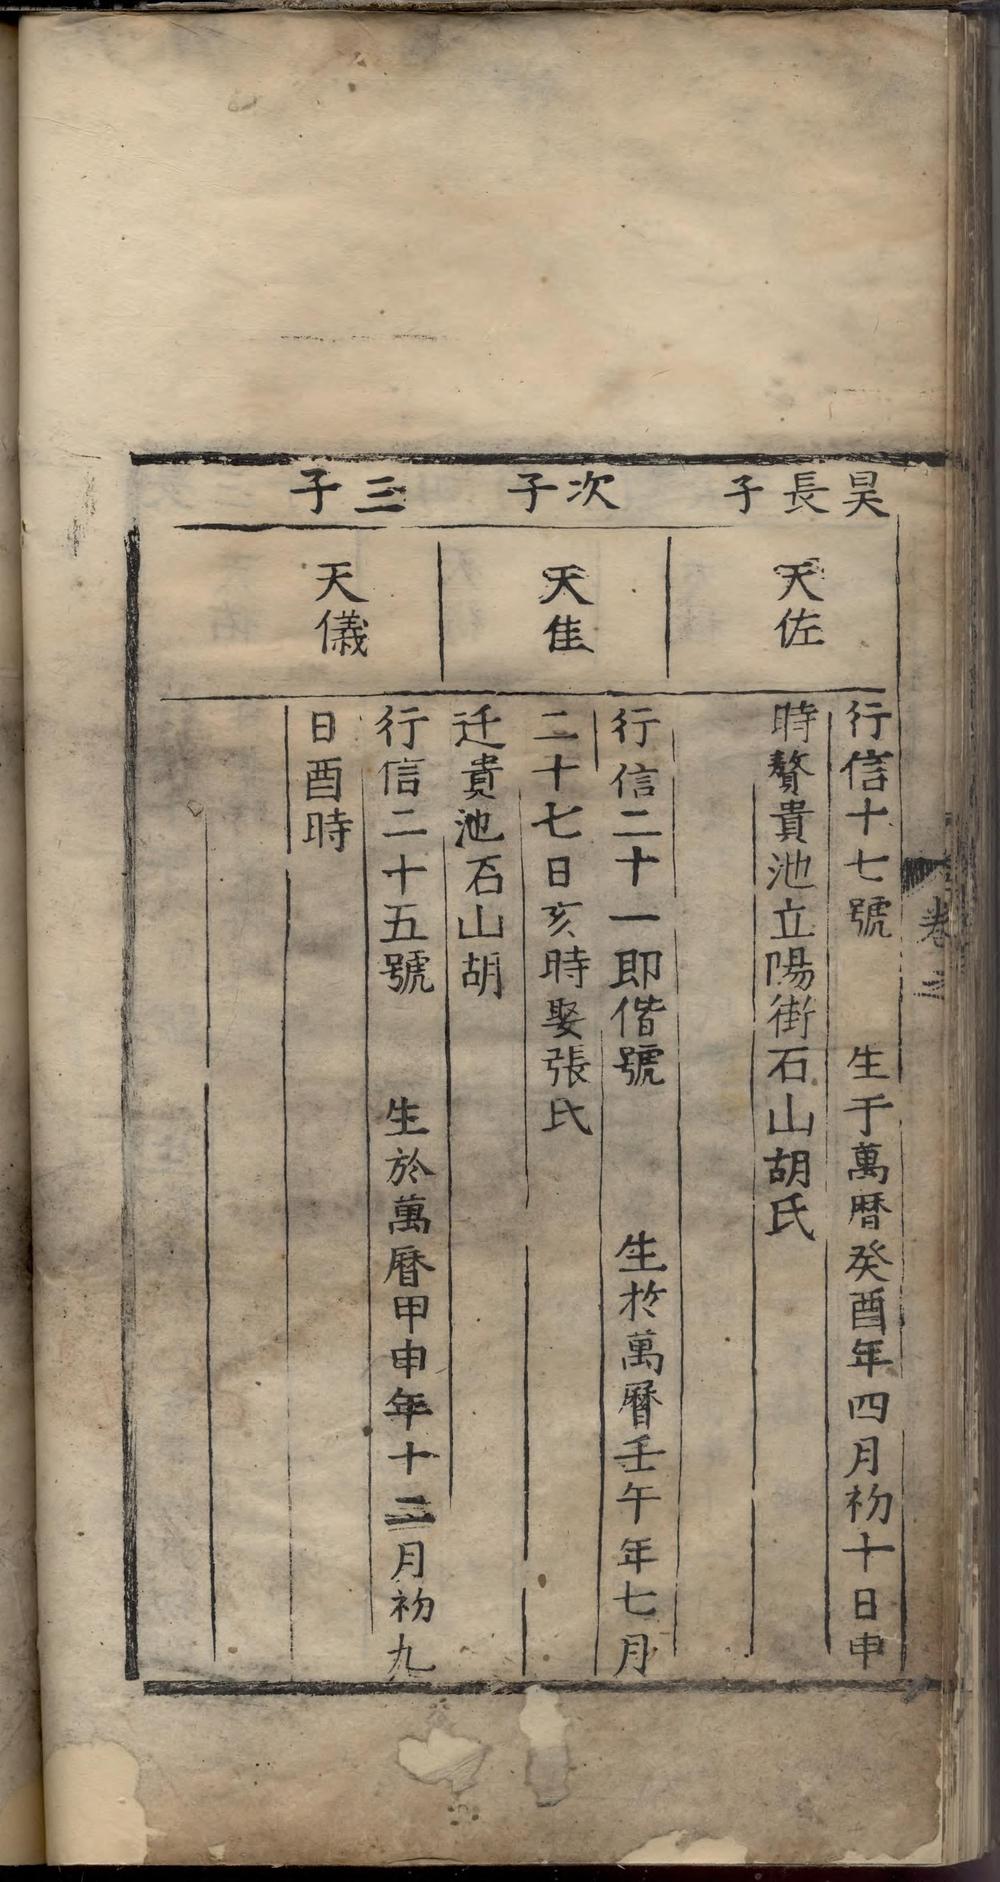 昊長子
天佐
行信十七號　生于萬暦癸酉年四月初十日申
時贅貴池立陽街石山胡氏
次子
天隹
行信二十一即偕號　生於萬曆壬午年七月
二十七日亥時娶張氏
迁貴池石山胡
三子
天儀
行信二十五號　生於萬曆甲申年十二月初九
日酉時
卷